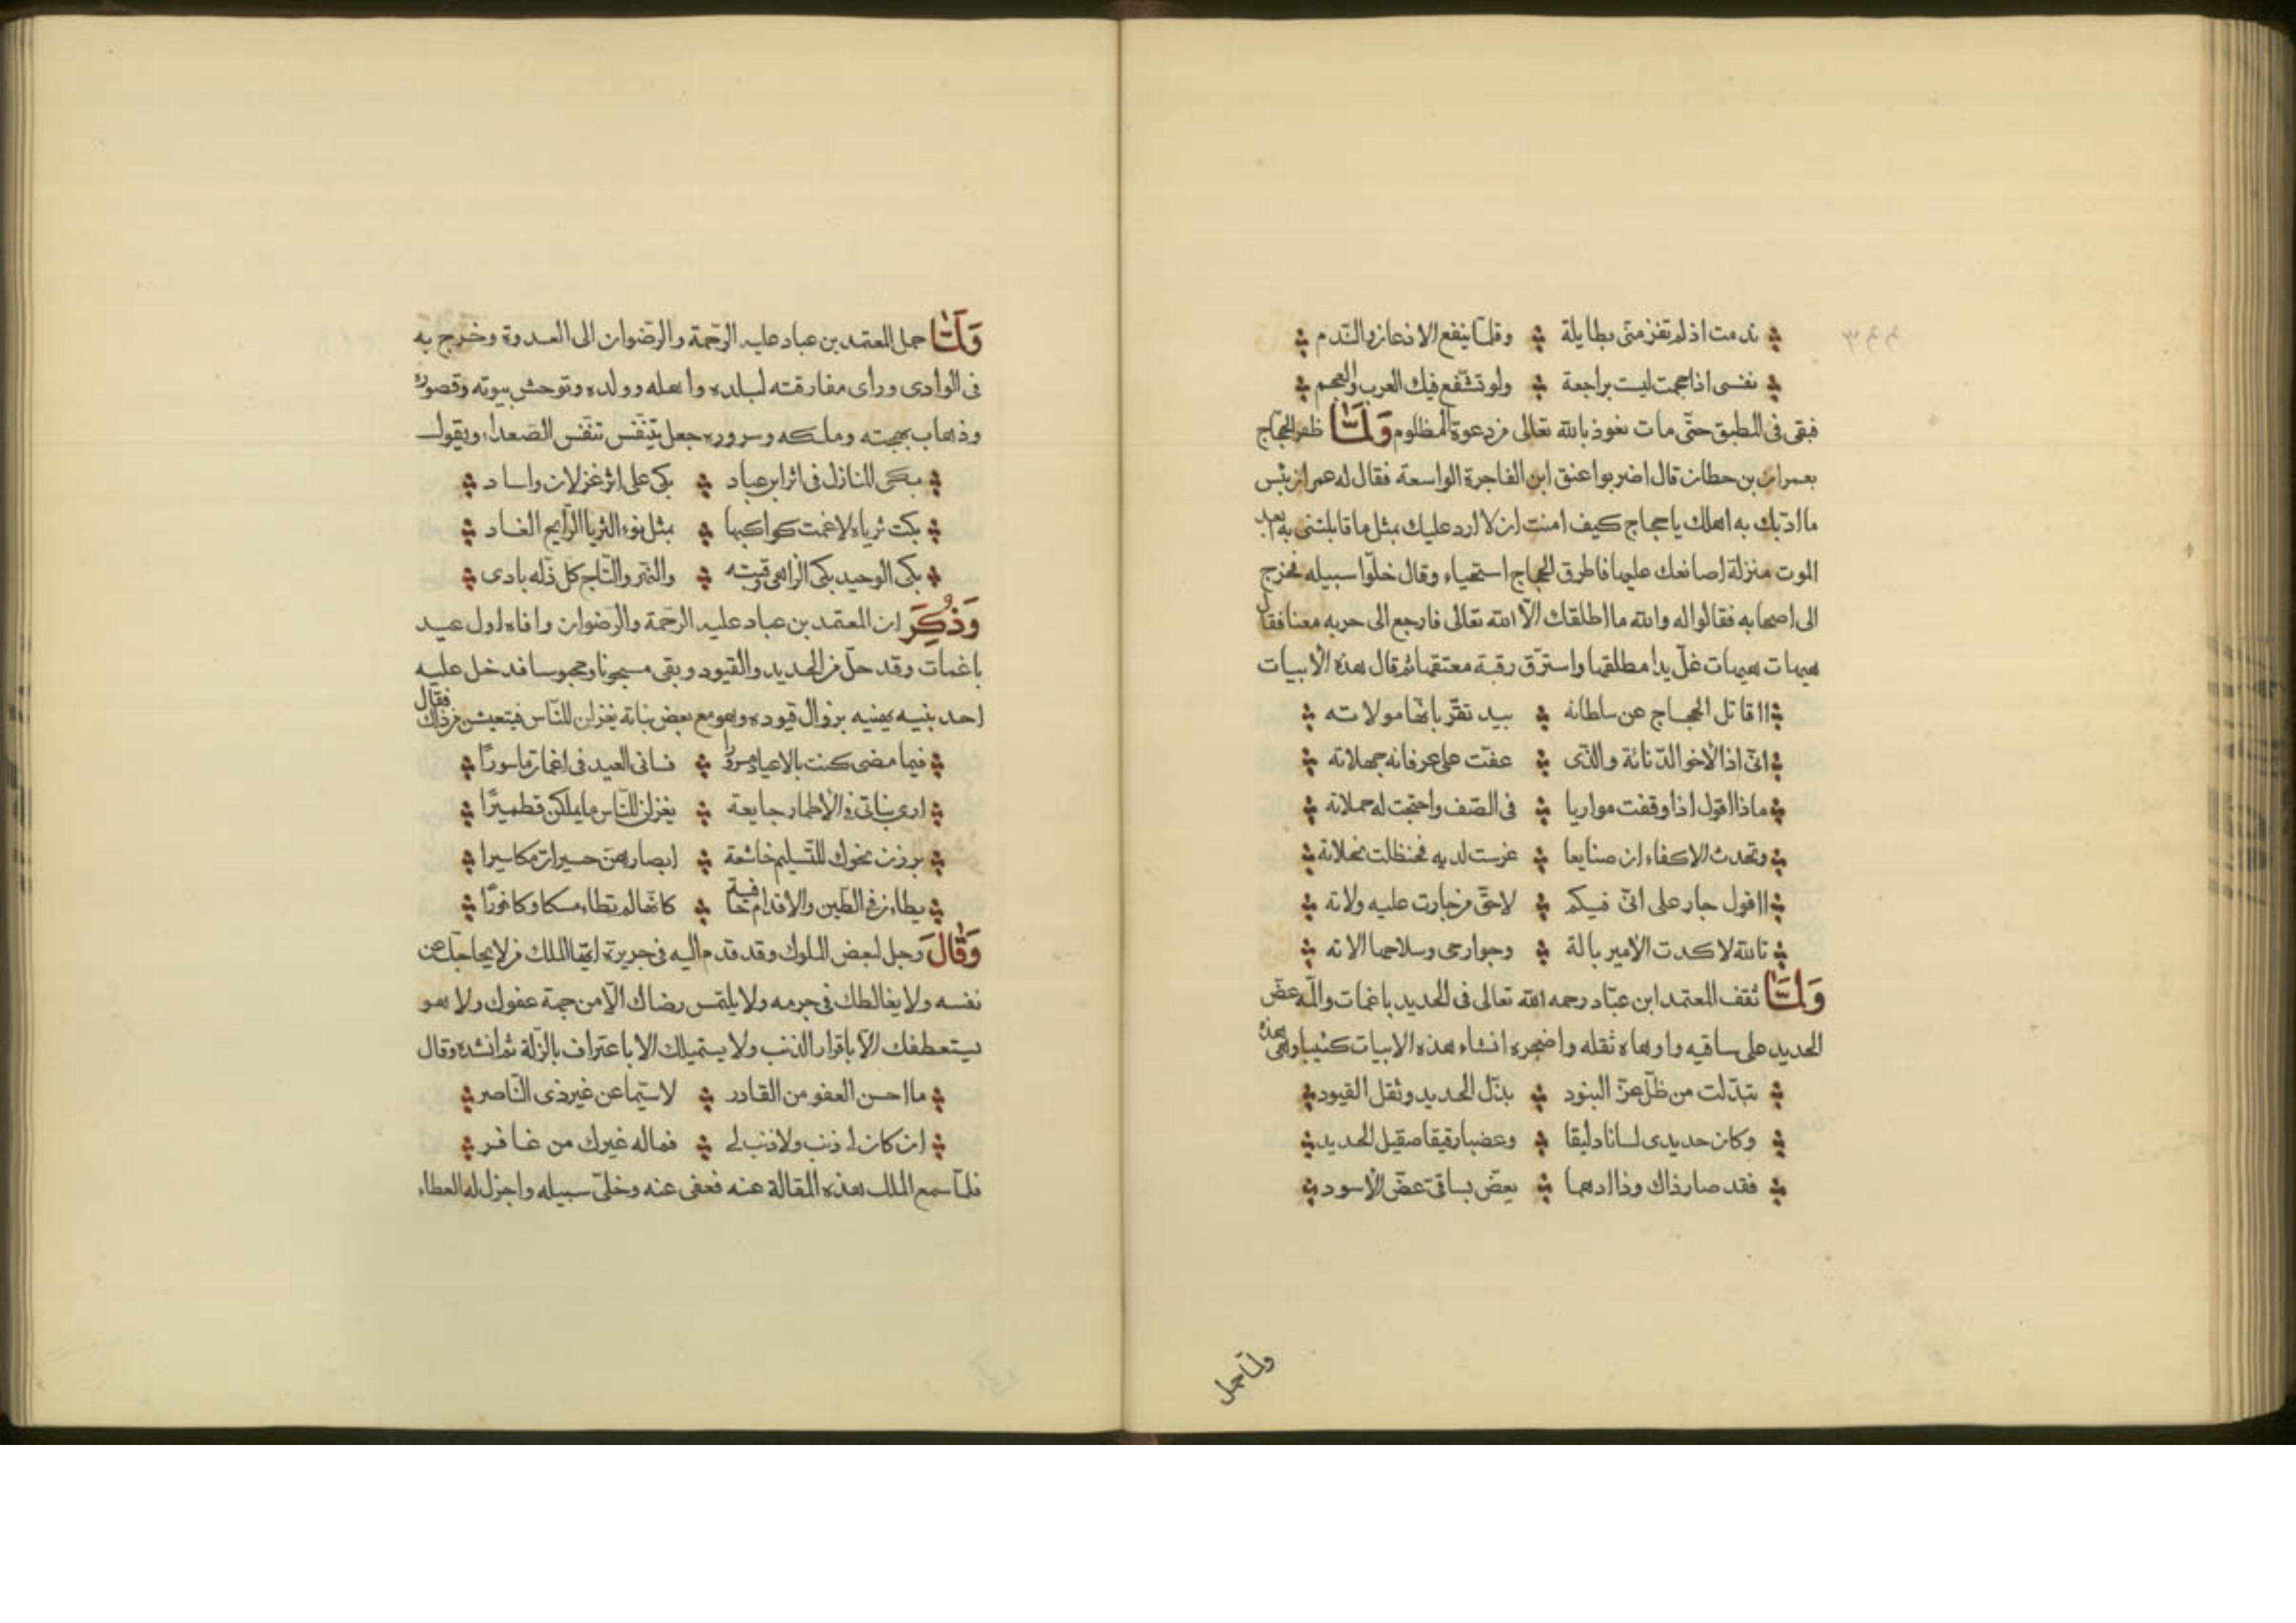 ندمت اذ لم تفز منى بطايلة ۞ وقلما ينفع الاذعان والندم
نفسى اذا جمحت ليست براجعة ۞ ولو تشفع فيك العرب والعجم
فبقى فى المطبق حتّى مات نعوذ بالله تعالى من دعوة المظلوم وَلَمَّا ظفر الحجّاج
بعمران بن حطان قال اضربوا عنق ابن الفاجرة الواسعة فقال له عمران بئس
ما ادّبك به اهلك يا حجاج كيف امنت ان لا ارد عليك بمثل ما قابلتنى به ابعد
الموت منزلة اصانعك عليها فاطرق الحجاج استحياء وقال خلّوا سبيله فخرج
الى اصحابه فقالوا له والله ما اطلقك الّا الله تعالى فارجع الى حربه معنا فقال
هيهات هيهات غلّ يدا مطلقها واسترّق رقبة معتقها ثم قال هذه الأبيات
أاقاتل الحجاج عن سلطانه ۞ بيد تقرّ بانّها مولاته
انّى اذا لاخو الدّنائة والذّى ۞ عفّت على عرفانه جهلاته
ماذا اقول اذا وقفت مواريا ۞ فى الصّف واحتجت له حملاته
وتحدث الاكفاء ان صنايعا ۞ غرست لديه فحنظلت نخلاته
أاقول جار على انّى فيكم ۞ لاحقّ من جارت عليه ولاته
تالله لا كدت الأمير بالة ۞ وجوارحى وسلاحها الاته
وَلَمَّا ثقف المعتمد ابن عبّاد رحمه الله تعالى فى الحديد باغمات والمّه عضّ
الحديد على ساقيه واوهاه ثقله واضجره انشاء هذه الابيات كئيبا وهى هذه
تبدّلت من ظلّ عزّ البنود ۞ بذّل الحديد وثقل القيود
وكان حديدى لسانا دليقا ۞ وعضبا رقيقا صقيل الحديد
فقد صار ذاك وذا ادهما ۞ يعضّ بساقى عضّ الأسود
ولمّا حمل
وَلَمَّا حمل المعتمد بن عباد عليه الرّحمة والرّضوان الى العدوة وخرج به
فى الوادى وراى مفارقته لبلده واهله وولده وتوحش بيوته وقصوره
وذهاب بهجته وملكه وسروره جعل يتنفّس تنفّس الصّعداء ويقول
بكى المنازل فى اثر ابن عباد ۞ بكى على اثر غزلان واساد
بكت ثرياه لا غمت كواكبها ۞ بمثل نوء الثريا الرّايح الغاد
بكى الوحيد بكى الزاهى وقبته ۞ والنهر والتّاج كلّ ذلّه بادى
وَذُكِرَ ان المعتمد بن عباد عليه الرّحمة والرضوان وافاه اول عيد
باغمات وقد حلّ من الحديد والقيود وبقى مسجونا ومحبوسا فدخل عليه
احد بنيه يهنيه بزوال قيوده وهو مع بعض بناته يغزلن للنّاس فيتعيش من ذلك فقال
فيما مضى كنت بالاعياد مسرورا ۞ فسانى العيد فى اغمات ماسورًا
ارى بناتى فى الأطمار جايعة ۞ يغزلن للنّاس ما يملكن قطميرًا
برزن نحوك للتّسليم خاشعة ۞ ابصارهنّ حسيرات مكاسيرا
يطاءن فى الطّين والاقدام خافية ۞ كانّها لم تطاء مسكا وكافورًا
وَقَالَ رجل لبعض الملوك وقد قدم اليه فى جريرة ايّها الملك من لا يحاجّك عن
نفسه ولا يغالطك فى جرمه ولا يلتمس رضاك الّا من جهة عفوك ولا هو
يستعطفك الّا باقرار الذنب ولا يستميلك الا باعتراف بالزّلة ثم انشده وقال
ما احسن العفو من القادر ۞ لا سيّما عن غير ذى النّاصر
ان كان لى ذنب ولا ذنب لى ۞ فماله غيرك من غافر
فلمّا سمع الملك هذه المقالة عنه فعفى عنه وخلّى سبيله واجزل له العطاء